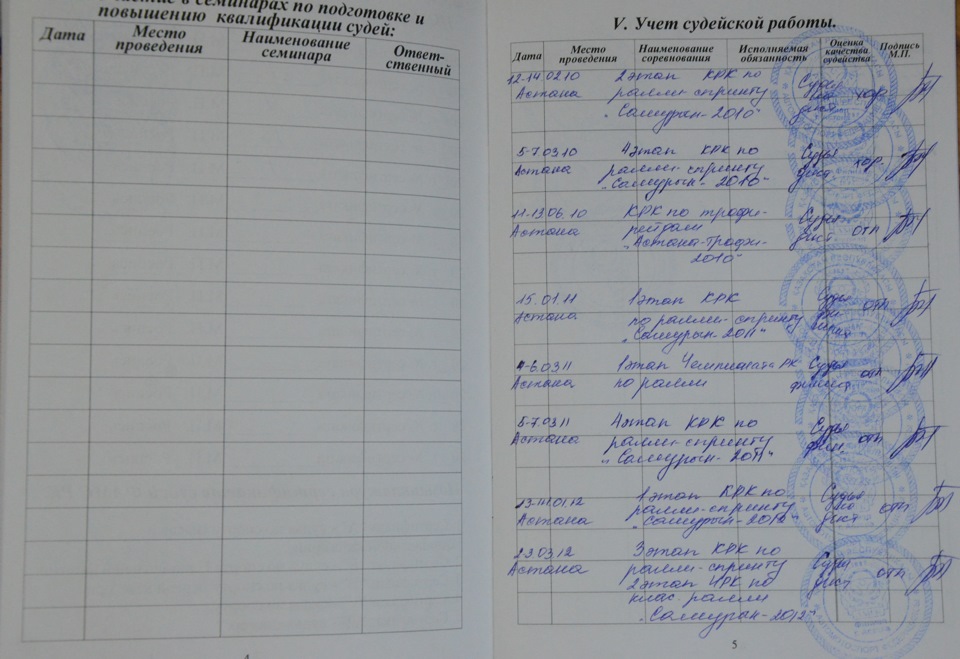 участие в семинарах по подготовке и
повышению квалификации судей:
Дата Место проведения Наименование семинара Ответ-ственный
V. Учет судейской работы.
Дата Место проведения Наименование соревнования Исполняемая обязанность Оценка качества судейства Подпись М.П.
12-14.02.10 2 этап КРК по Судья
Астана ралли-спринту по хор.
„Самурын-2010" дист
5-7.03.10 4 этап КРК по Судья хор.
Астана ралли-спринту дист.
„Самурын-2010"
11-13.06.10 КРК по трофи- Судья
Астана рейдам дист отл
„Астана-Трофи-
2010"
15.01.11 1 этап КРК Судья отл
Астана по ралли-спринту
„Самурын-2011"
4-6.03.11 1 этап Чемпионата РК Судья отл
Астана по ралли
5-7.03.11 4 этап КРК по Судья
Астана ралли-спринту отл
„Самурын-2011"
13-14.01.12 1 этап КРК по Судья
Астана ралли-спринту по отл
„Самурын-2012" дист
23.03.12 3 этап КРК по Судья
Астана ралли-спринту дист отл
2 этап ЧРК по
клас. ралли
„Самурын-2012"
4
5